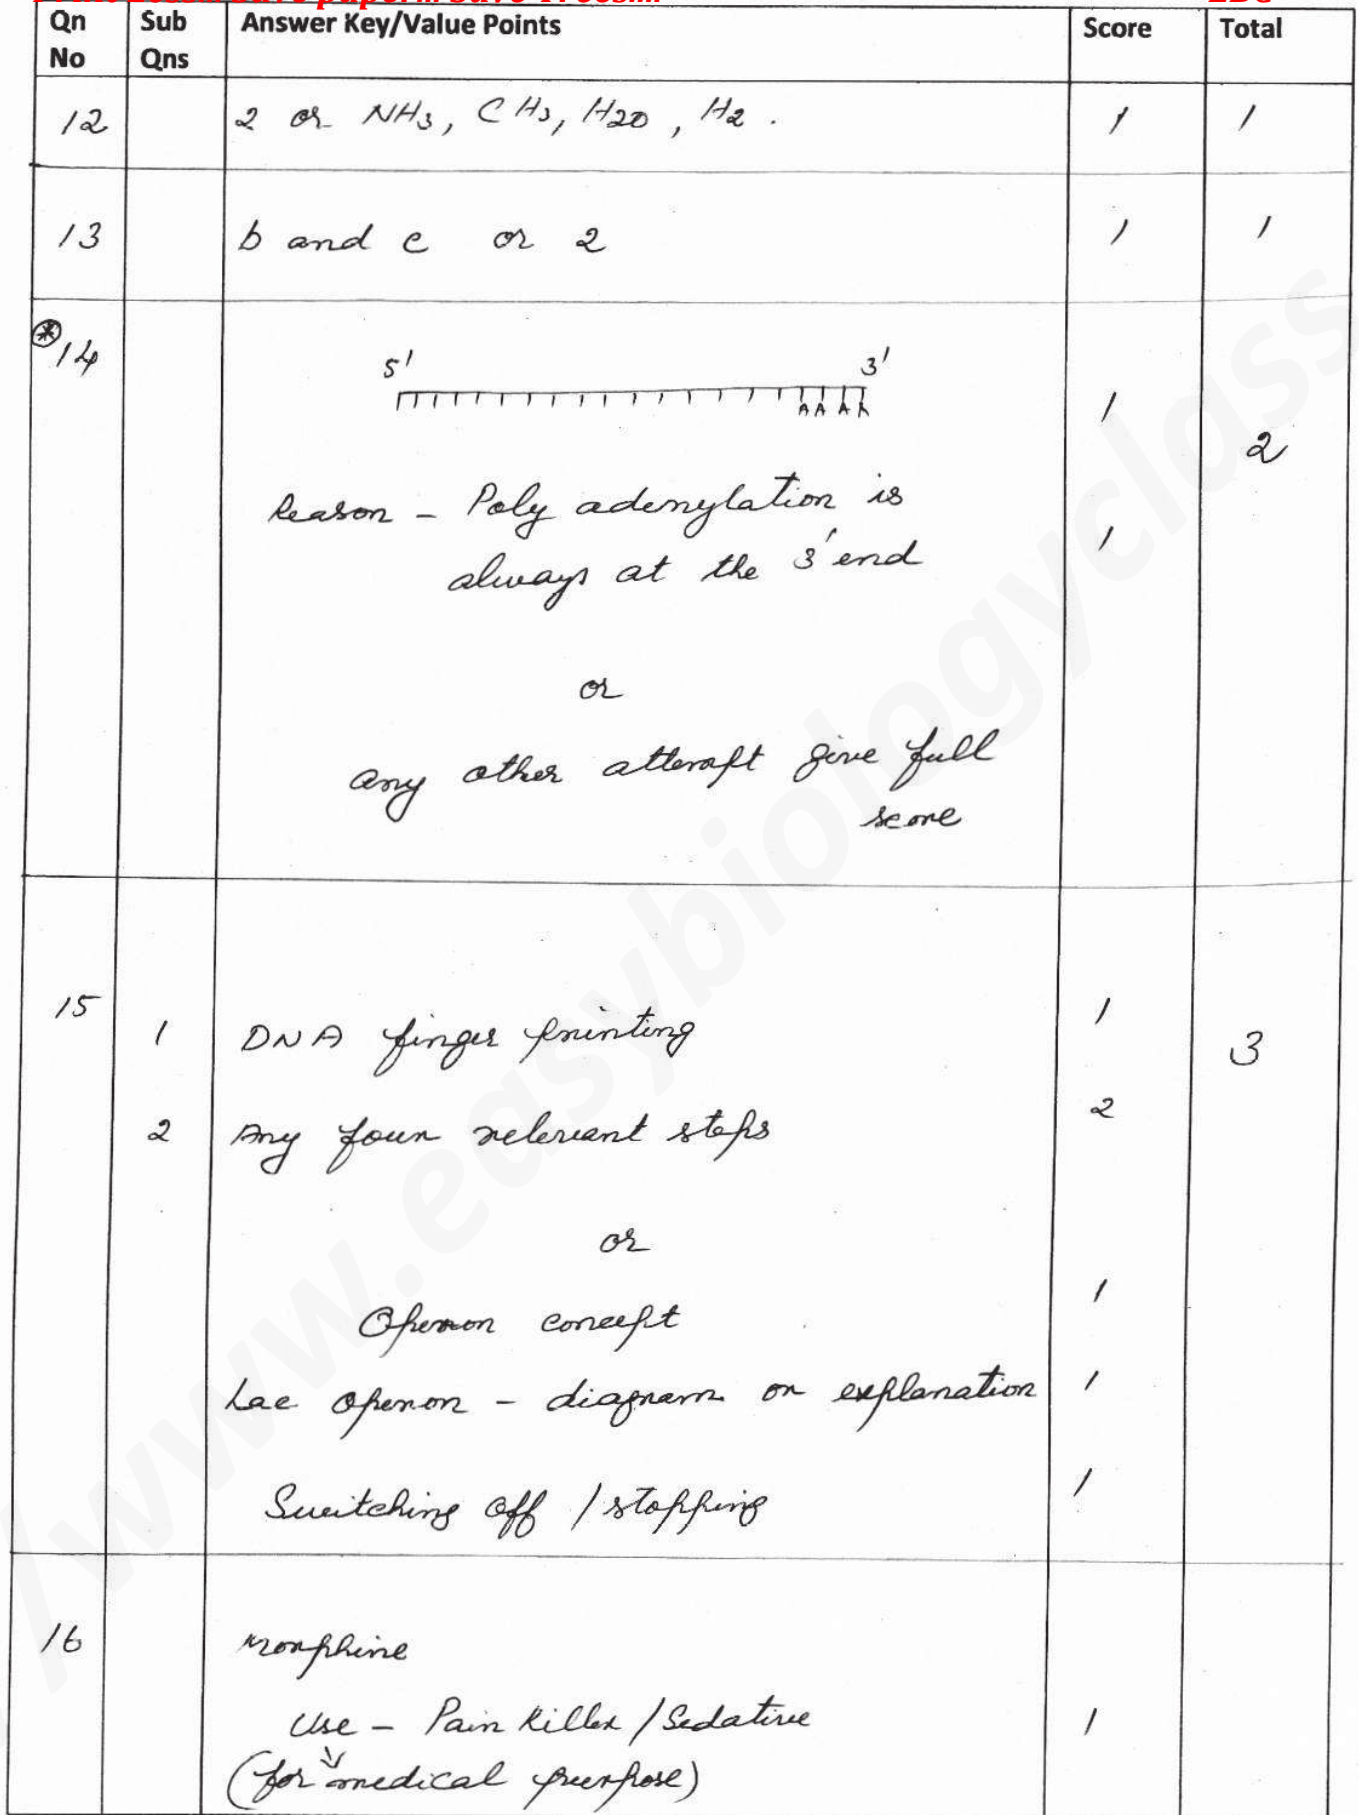 Qn No Sub Qns Answer Key/Value Points Score Total
12 2 or NH3, CH3, H2O, H2. 1 1
13 b and c or 2 1 1
*14 5' 3'
A A A A 1
2
Reason - Poly adenylation is
always at the 3' end 1
or
any other attempt give full
score
15 1 DNA finger printing 1
3
2 Any four relevant steps 2
or
Operon concept 1
Lac operon - diagram or explanation 1
Switching off / stopping 1
16 morphine
Use - Pain Killer / Sedative 1
(for medical purpose)
/www.easybiologyclass